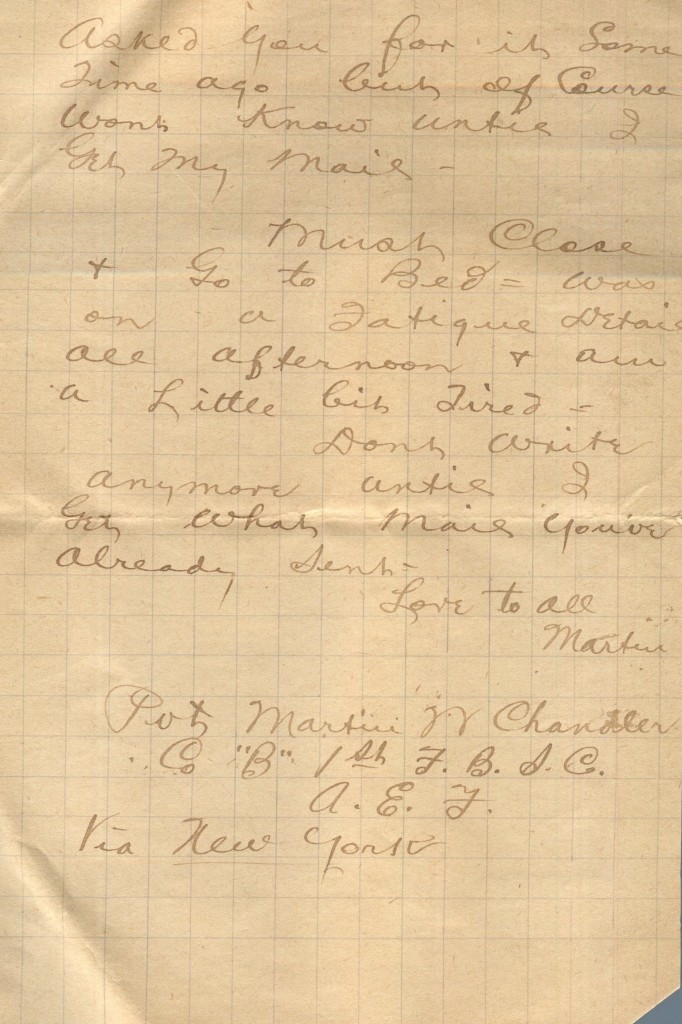 Asked you for it some
Time ago but of Course
Wont Know until I
Get My Mail -
Must Close
+ Go to Bed = was
on a Fatigue Detail
all afternoon + am
a Little bit Tired =
Dont write
anymore until I
Get what Mail you've
Already Sent -
Love to all
Martin
Pvt Martin W Chandler
Co "B" 1st F. B. S. C.
A. E. F.
Via New York